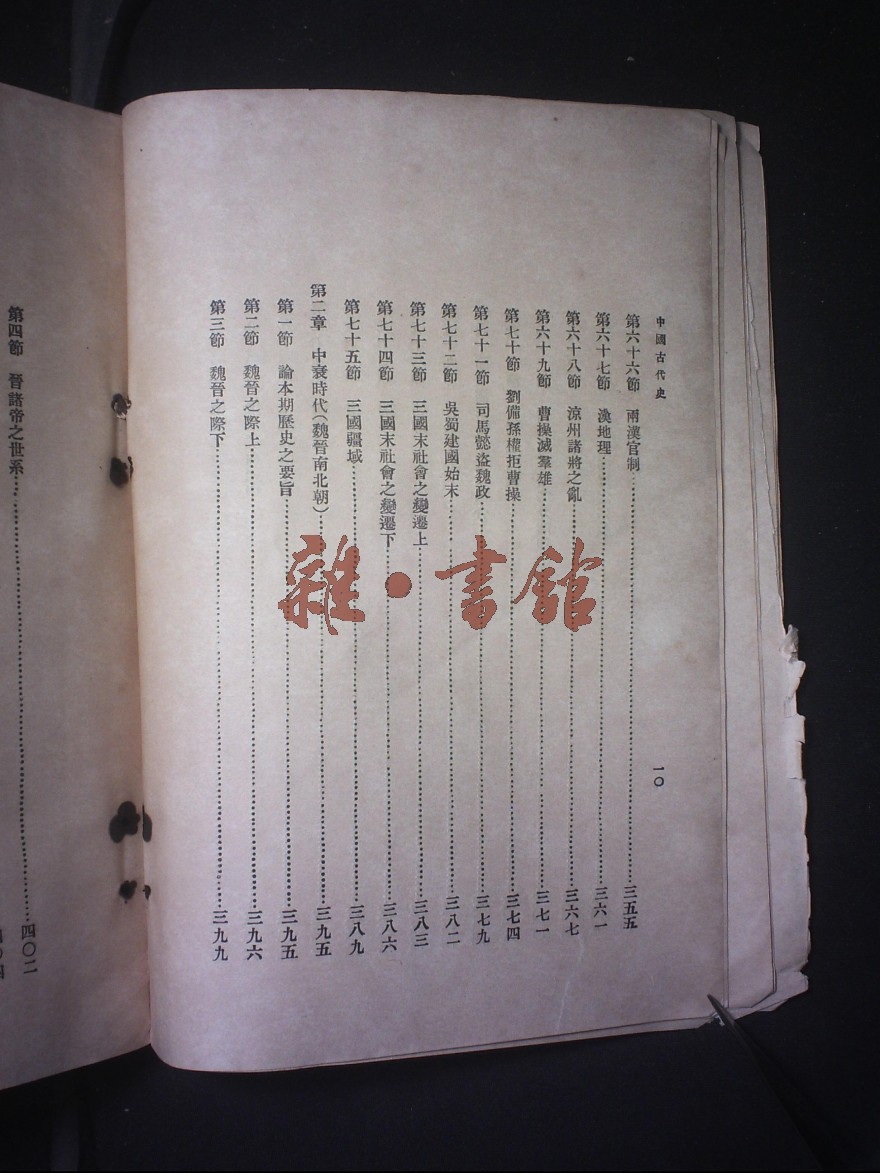 中國古代史
一〇
第六十六節 兩漢官制……三五五
第六十七節 漢地理……三六一
第六十八節 涼州諸將之亂……三六七
第六十九節 曹操滅羣雄……三七一
第七十節 劉備孫權拒曹操……三七四
第七十一節 司馬懿盜魏政……三七九
第七十二節 吳蜀建國始末……三八二
第七十三節 三國末社會之變遷上……三八三
第七十四節 三國末社會之變遷下……三八六
第七十五節 三國疆域……三八九
第二章 中衰時代(魏晉南北朝)……三九五
第一節 論本期歷史之要旨……三九五
第二節 魏晉之際上……三九六
第三節 魏晉之際下……三九九
第四節 晉諸帝之世系……四〇二
雜·書館